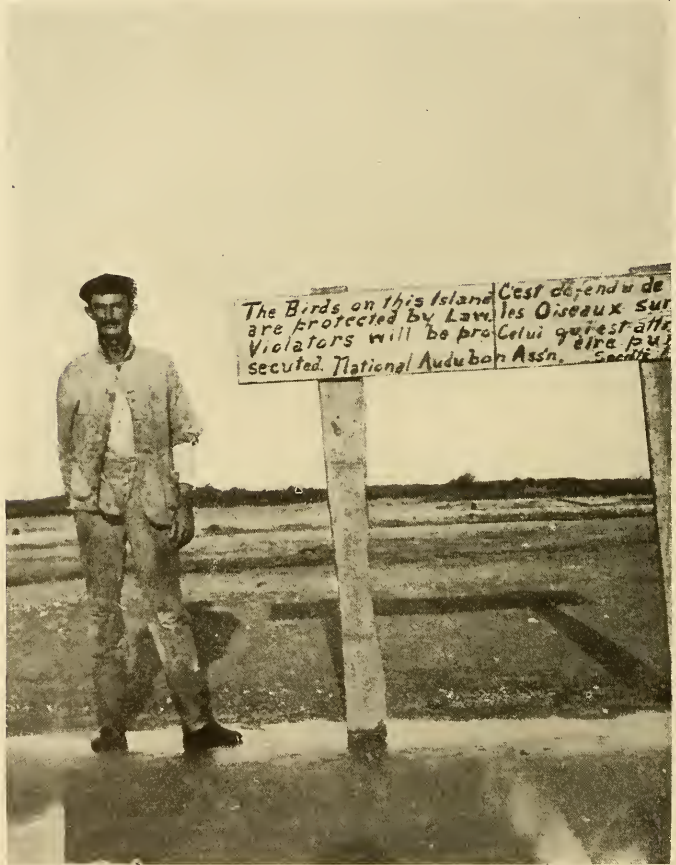 The Birds on this Island
are protected by Law.
Violators will be pro-
secuted. National Audubon Ass'n.
C'est défendu de
les Oiseaux sur
Celui qui est
être
Société